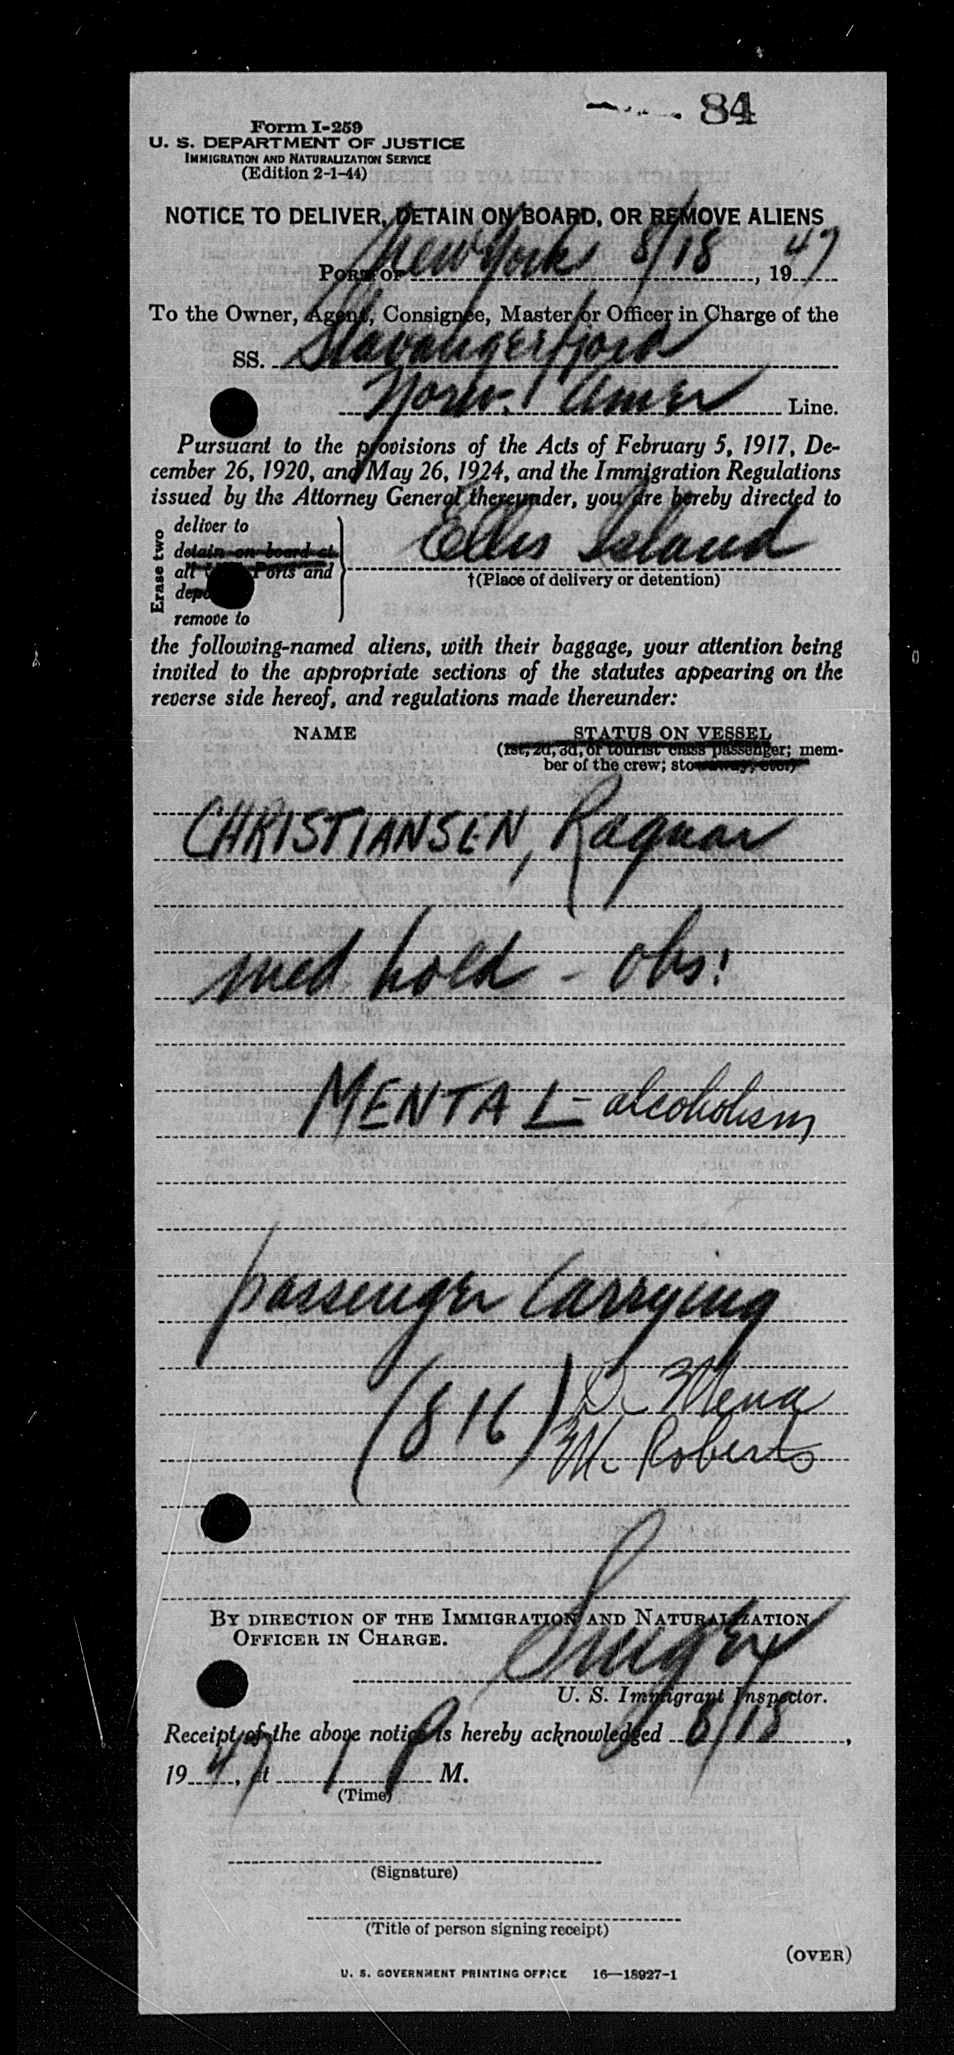 84
Form I-259
U. S. DEPARTMENT OF JUSTICE
IMMIGRATION AND NATURALIZATION SERVICE
(Edition 2-1-44)
NOTICE TO DELIVER, DETAIN ON BOARD, OR REMOVE ALIENS
PORT OF New York 8/18, 1947
To the Owner, Agent, Consignee, Master or Officer in Charge of the
SS. Stavangerfjord
Norw. Amer Line.
Pursuant to the provisions of the Acts of February 5, 1917, De-
cember 26, 1920, and May 26, 1924, and the Immigration Regulations
issued by the Attorney General thereunder, you are hereby directed to
Erase two
deliver to
detain on board at
all Ports and
remove to
Ellis Island
†(Place of delivery or detention)
the following-named aliens, with their baggage, your attention being
invited to the appropriate sections of the statutes appearing on the
reverse side hereof, and regulations made thereunder:
NAME STATUS ON VESSEL
(1st, 2d, 3d, or tourist class passenger; mem-
ber of the crew; stowaway, etc.)
CHRISTIANSEN, Ragnar
med hold - obs!
MENTAL - alcoholism
passenger carrying
(816) Dr Mena
Mc Roberts
BY DIRECTION OF THE IMMIGRATION AND NATURALIZATION
OFFICER IN CHARGE.
U. S. Immigrant Inspector.
Receipt of the above notice is hereby acknowledged 8/18,
1947, at 1 P M.
(Time)
(Signature)
(Title of person signing receipt)
(OVER)
U. S. GOVERNMENT PRINTING OFFICE 16—18927-1